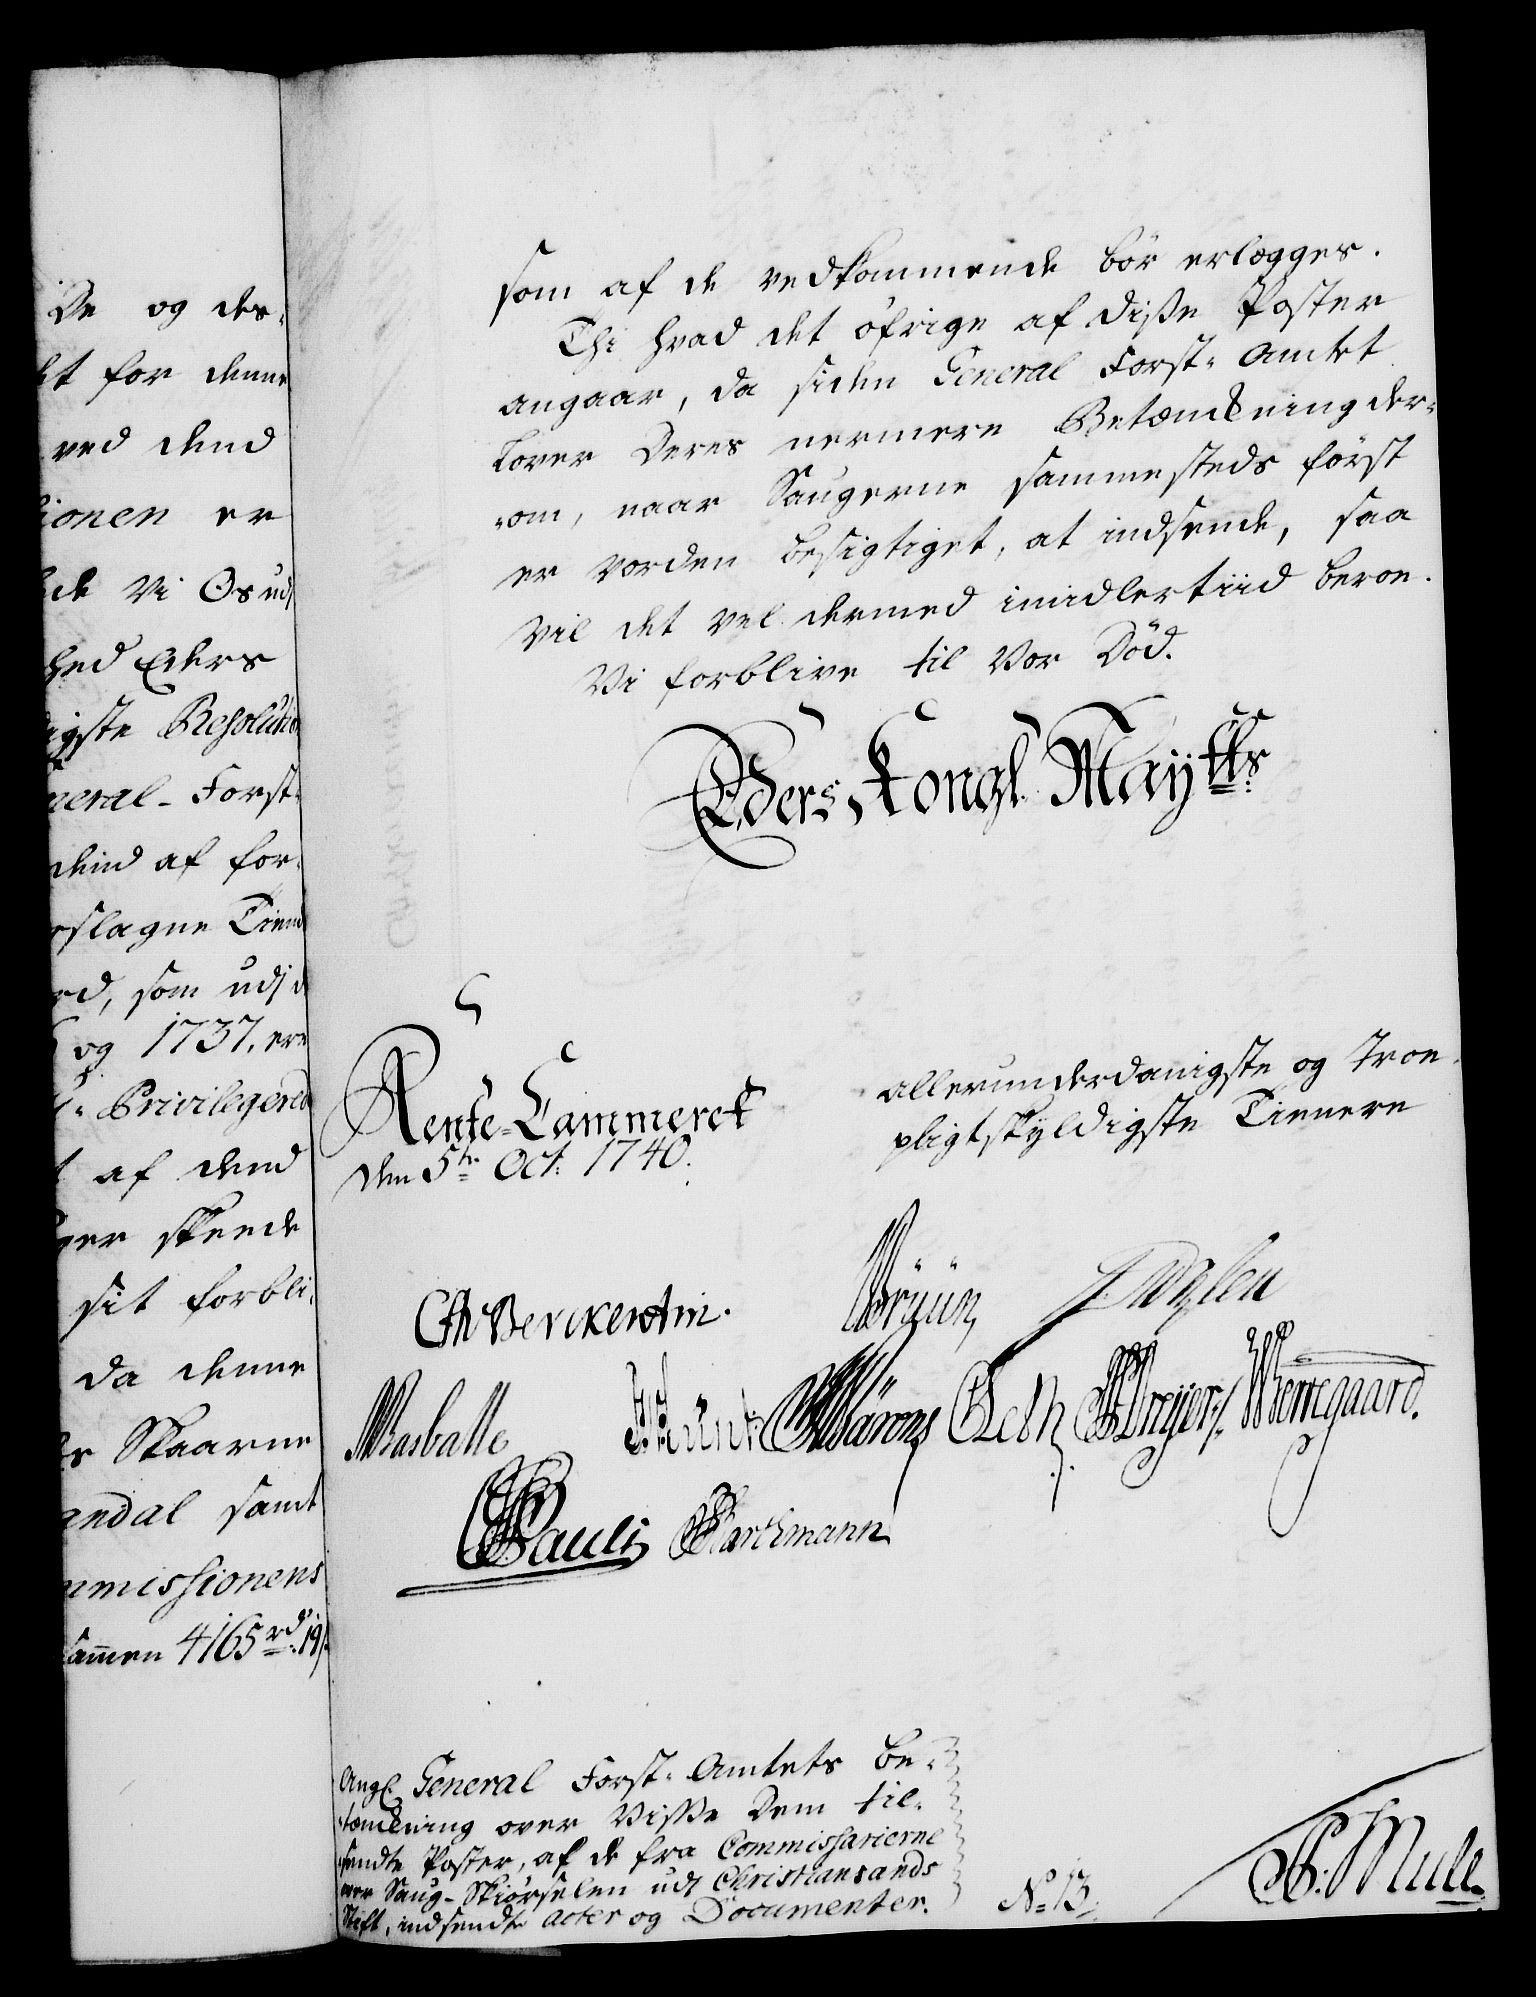 De og des-
et for denne
ved dend
ionen er
de Vi Os udj
hed Eders
igste Resolution
neral-Forst-
dend af for-
rslagne Tiend
rd, som udj d
og 1737, ere
Privilegered
af dend
ger skeede
sit forbli-
da denne
Skaarne
andal samt
mmissionens
sam̄en 4165 rd: 19
som af de vedkommende bör erlægges.
Thi hvad det öfrige af diße Poster
angaar, da siden General Forst-Amtet
lover Deres nermere Betænkning der-
-om, naar Saugerne sammesteds först
er vorden besigtiget, at indsende, saa
vil det vel dermed imidlertiid beroe.
Vi forblive til Vor Död.
Eders Kongl. Maytts:
Rente-Cammeret
den 5te Oct: 1740.
allerunderdanigste og Troe-
pligtskyldigste Tienere
CAvBerckentin.
Brüün
Basballe
Bärens
Dreyer
Werregaard.
Pauli
Barthmann
Angl. General Forst-Amtets Be-
-tænkning over Viße Dem til-
sendte Poster, af de fra Commissarierne
over Saug-Skiörselen udj Christiansands
Stift, indsendte Acter og Documenter.
No 13.
P: Mule